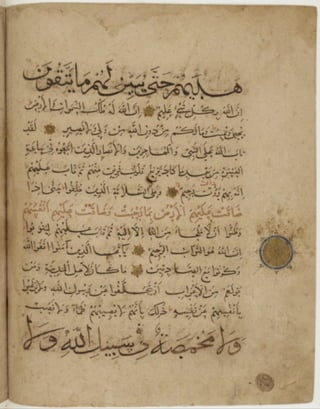 هديهم حتى يبين لهم ما يتقون
ان الله بكل شئ عليم ان الله له ملك السموات والارض
يحيى ويميت وما لكم من دون الله من ولى ولا نصير لقد
تاب الله على النبى والمهاجرين والانصار الذين اتبعوه فى ساعة
العسرة من بعد ما كاد يزيغ قلوب فريق منهم ثم تاب عليهم
انه بهم رؤف رحيم وعلى الثلاثة الذين خلفوا حتى اذا
ضاقت عليهم الارض بما رحبت وضاقت عليهم انفسهم
وظنوا ان لا ملجأ من الله الا اليه ثم تاب عليهم ليتوبوا
ان الله هو التواب الرحيم يا ايها الذين آمنوا اتقوا الله
وكونوا مع الصادقين ما كان لاهل المدينة ومن
حولهم من الاعراب ان يتخلفوا عن رسول الله ولا يرغبوا
بانفسهم عن نفسه ذلك بانهم لا يصيبهم ظمأ ولا نصب
ولا مخمصة فى سبيل الله ولا